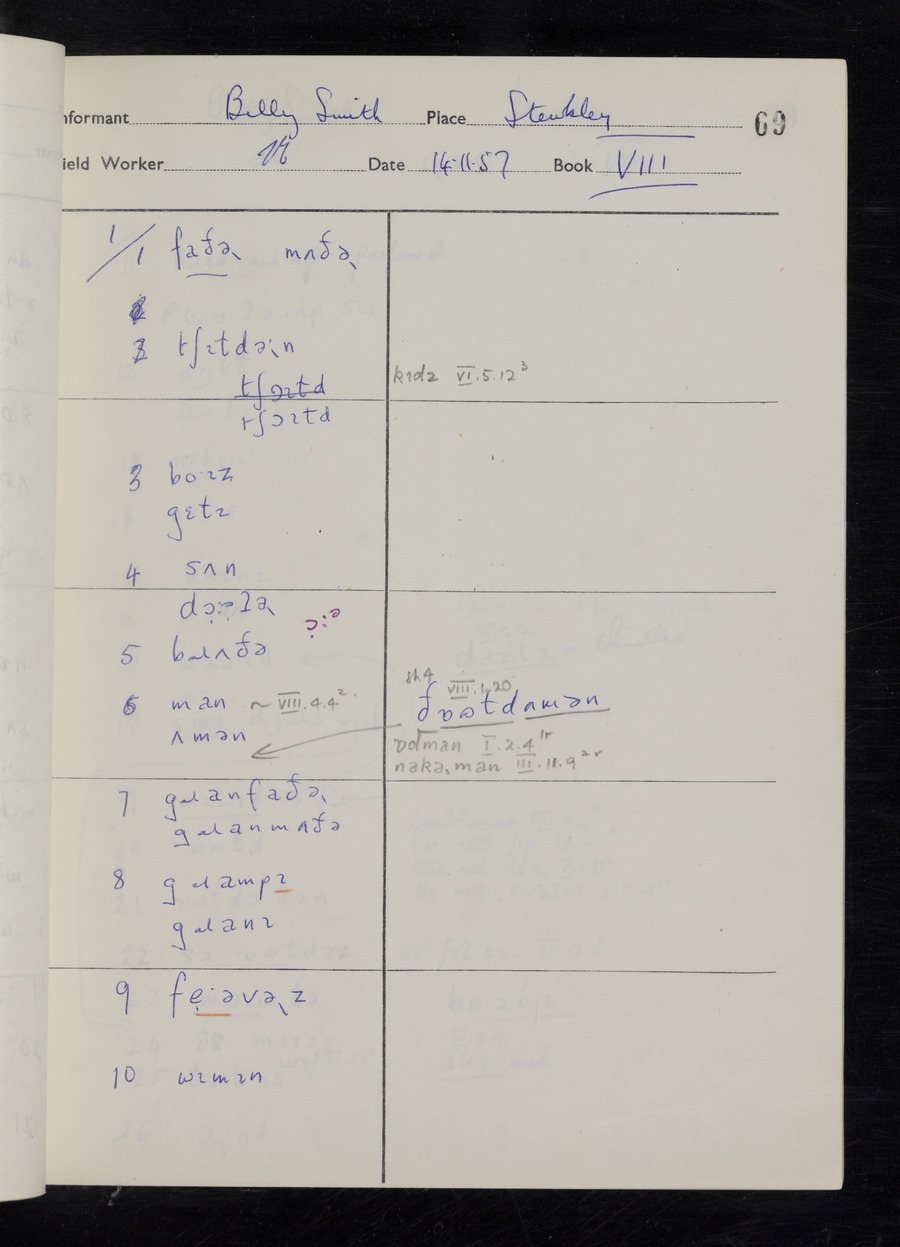 nformant Billy Smith Place Stewkley 69
ield Worker Date 14·11·57 Book VIII
1/1 faðə˞ mʌðə˞
2 tʃɪtdɹən
tʃɔɪtd
tʃɔɪtd
kɪdz VI.5.12³
3 bɔɪz
gɛtz
4 sʌn
5 bɹʌðə
6 man ~ VIII.4.4²
ʌmən
sh4 VIII.1.20
ðɒʊtdʌmən
ɒdmən I.2.4
nakə˞man III.11.9
7 gɹanfaðə˞
gɹanmʌðə
8 gɹampɪ
gɹanɪ
9 fẹ:əvə˞z
10 wɪmɪn